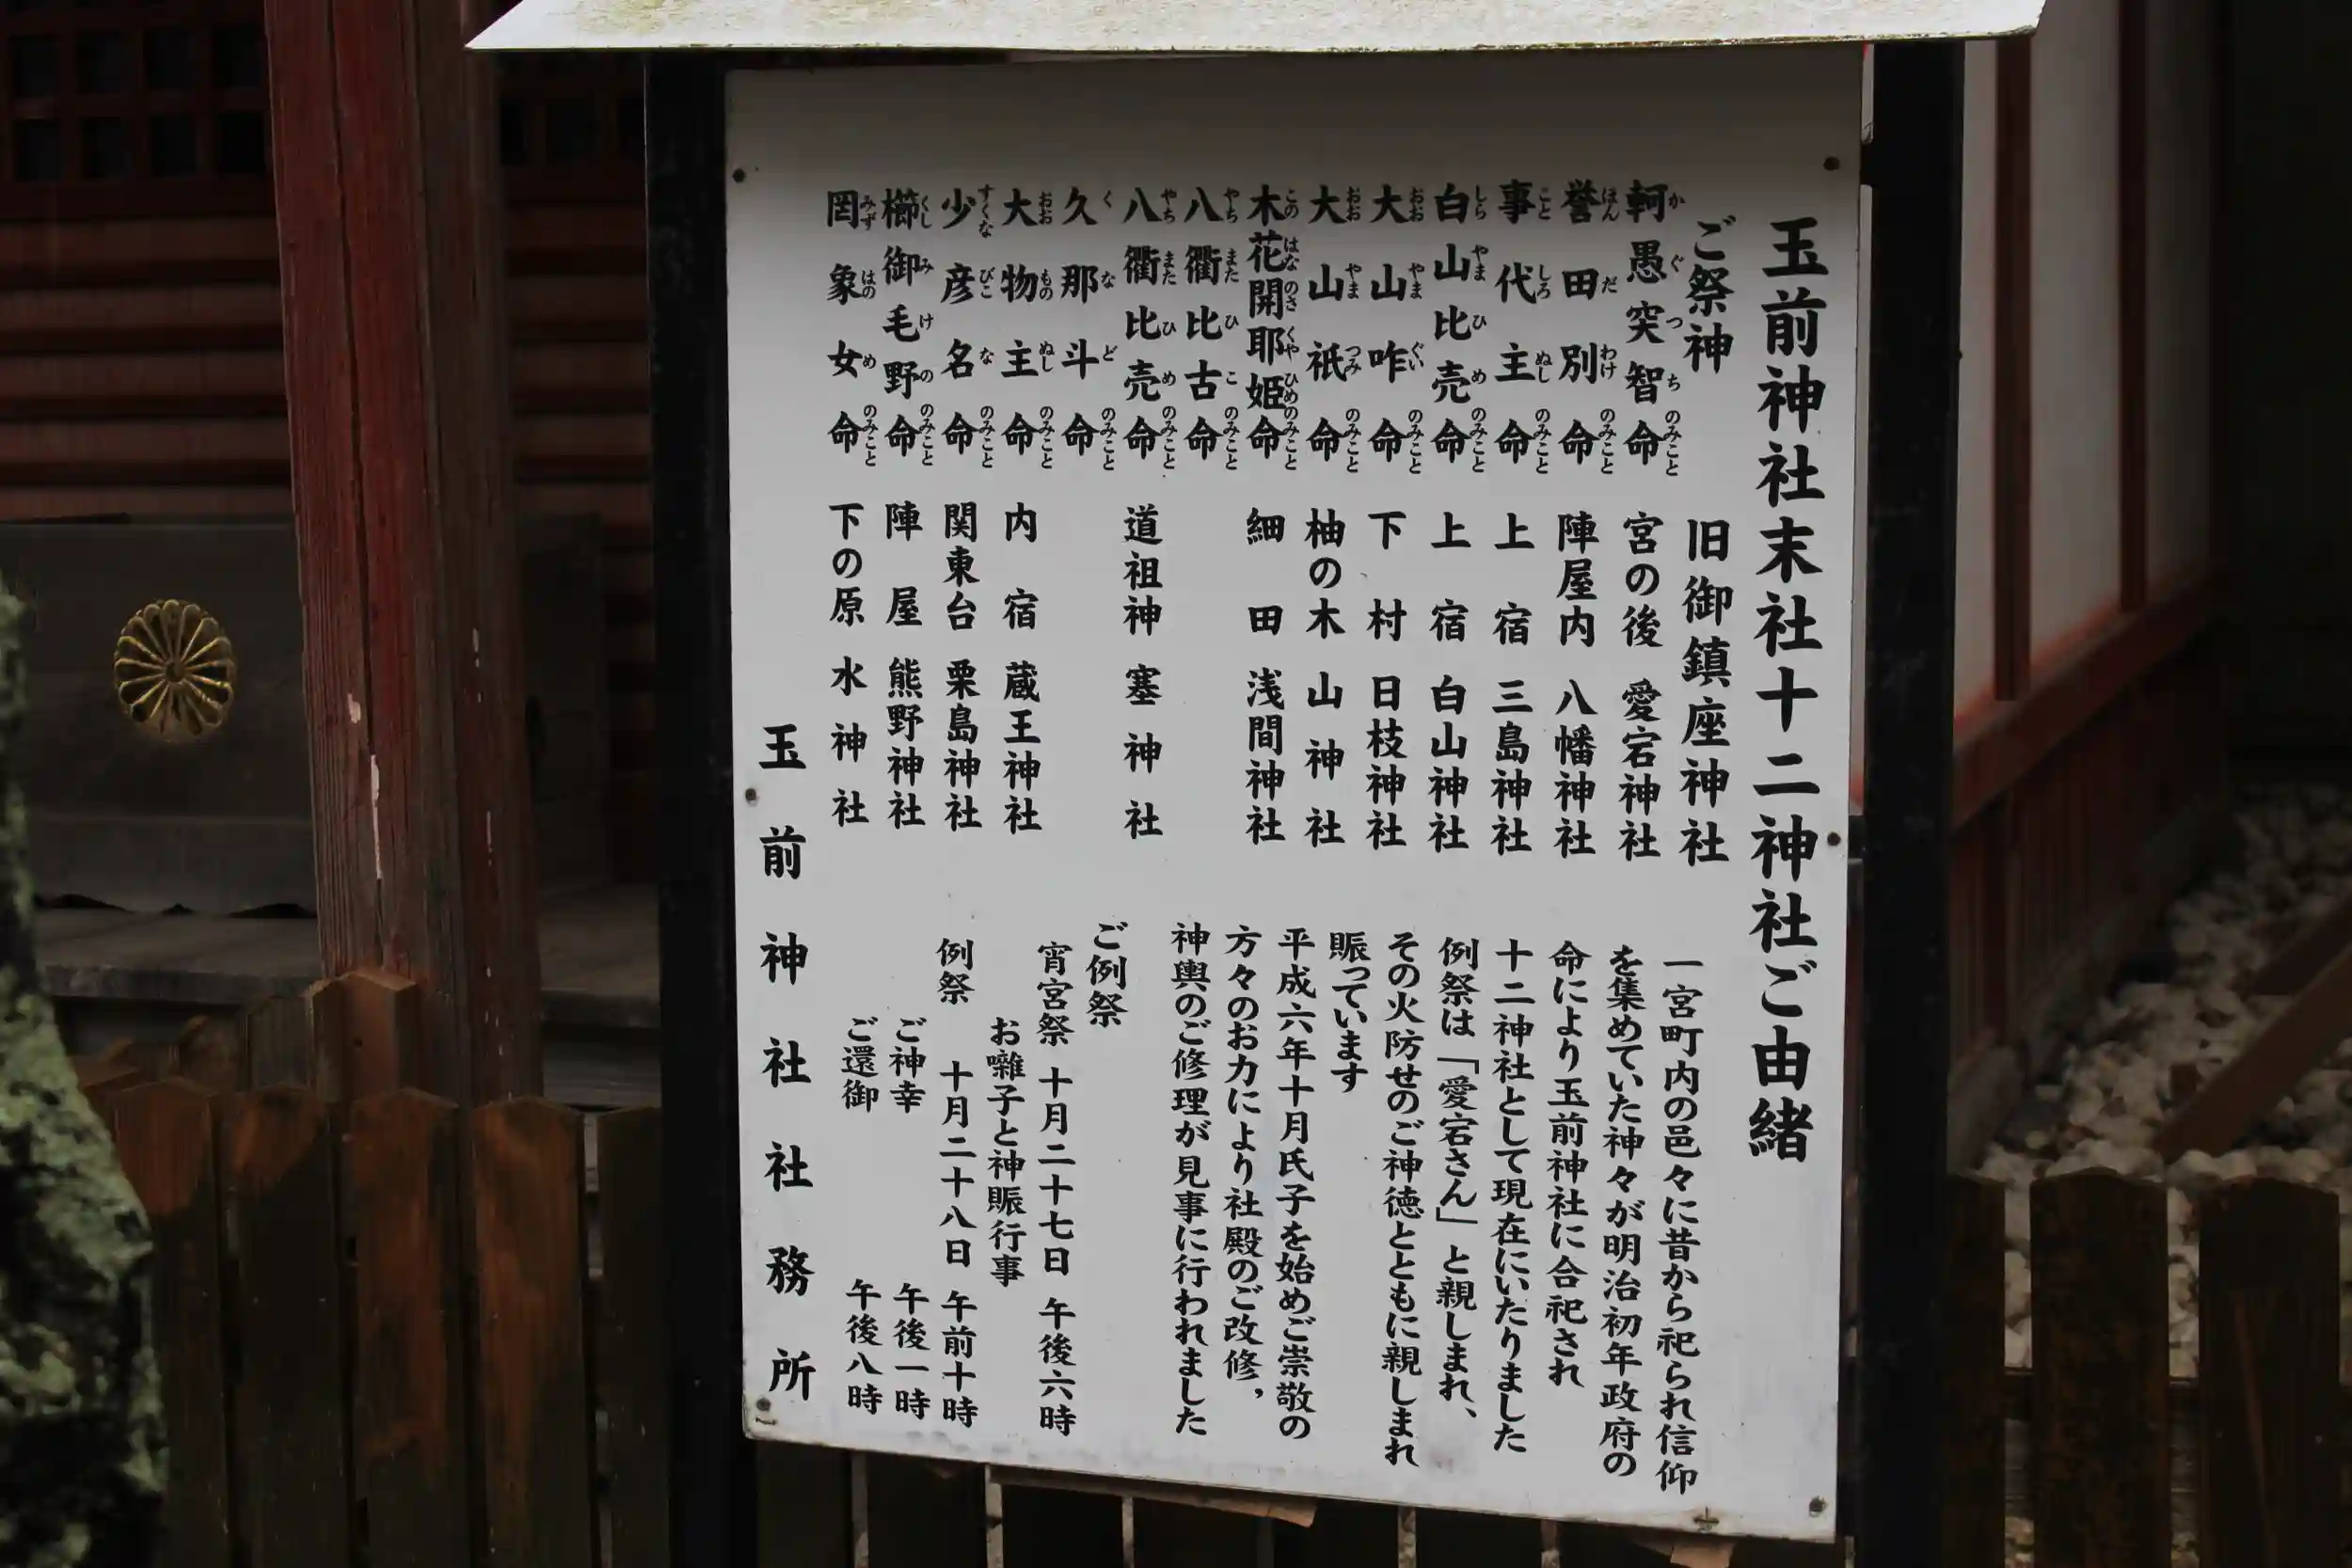 玉前神社末社十二神社ご由緒
ご祭神 旧御鎮座神社
軻愚突智命 宮の後 愛宕神社
誉田別命 陣屋内 八幡神社
事代主命 上宿 三島神社
白山比売命 上宿 白山神社
大山咋命 下村 日枝神社
大山祇命 柚の木 山神社
木花開耶姫命 細田 浅間神社
八衢比古命
八衢比売命 道祖神 塞神社
久那斗命
大物主命 内宿 蔵王神社
少彦名命 関東台 栗島神社
櫛御毛野命 陣屋 熊野神社
罔象女命 下の原 水神社
一宮町内の邑々に昔から祀られ信仰
を集めていた神々が明治初年政府の
命により玉前神社に合祀され
十二神社として現在にいたりました
例祭は「愛宕さん」と親しまれ、
その火防せのご神徳とともに親しまれ
賑っています
平成六年十月氏子を始めご崇敬の
方々のお力により社殿のご改修,
神輿のご修理が見事に行われました
ご例祭
宵宮祭 十月二十七日 午後六時
お囃子と神賑行事
例祭 十月二十八日 午前十時
ご神幸 午後一時
ご還御 午後八時
玉前神社社務所